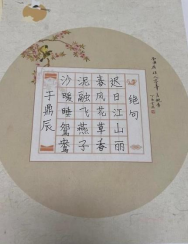 绝句
迟日江山丽
春风花草香
泥融飞燕子
沙暖睡鸳鸯
于鼎辰